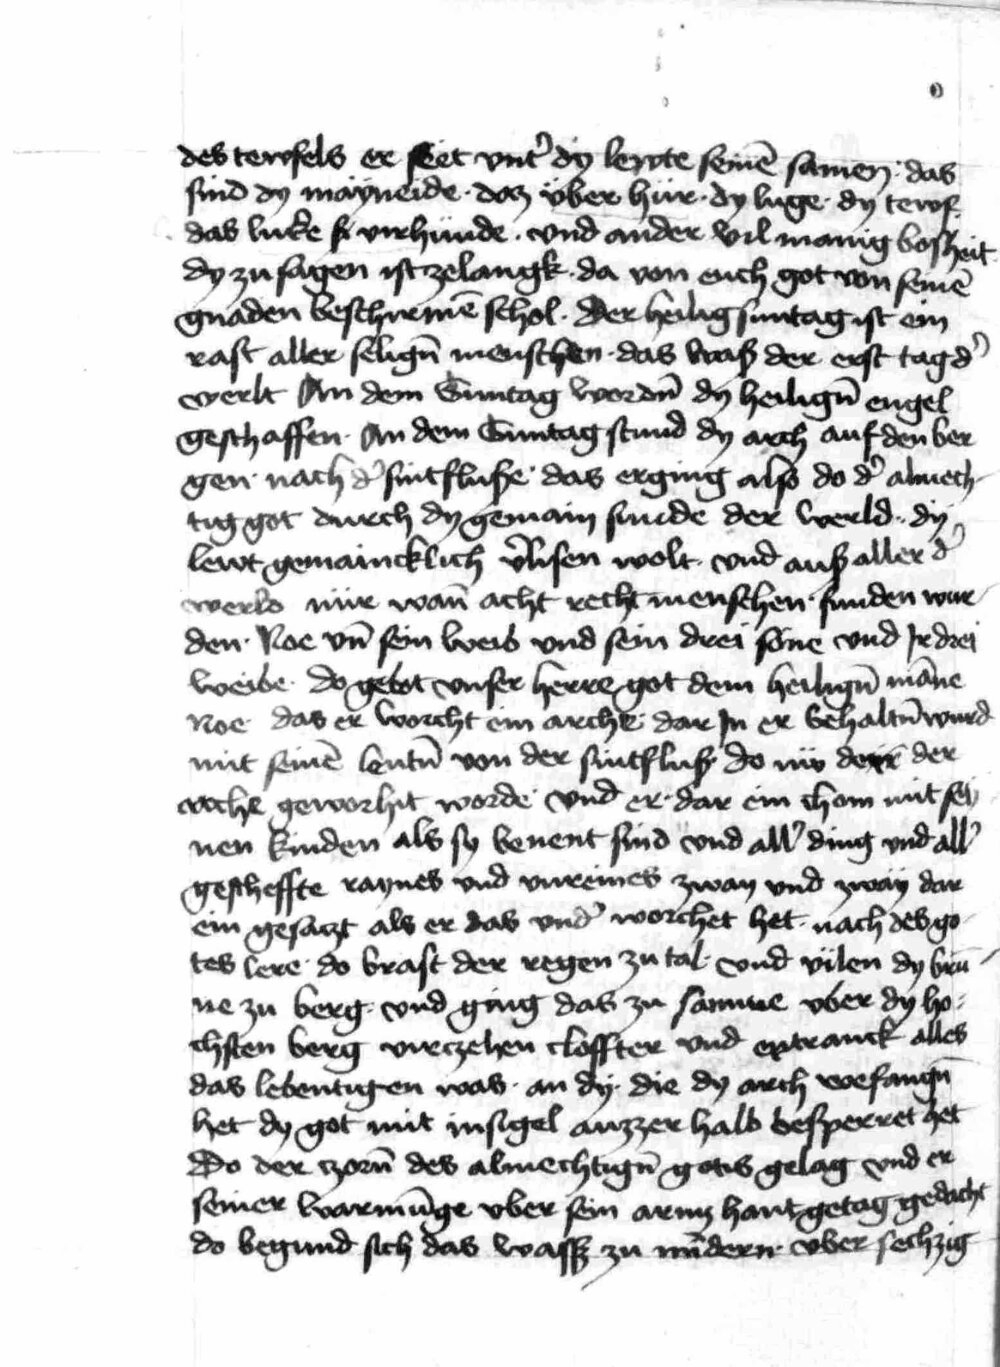 des tewfels er seet vnt' dy lewte seinē samen · das
sind dy mayneide · das über hür · dy luge · dy tewf
das lucke vrchünde · vnd ander vil manig bosheit
dy zu sagen ist zelangk · da von euch got von seinē
gnaden beschirmē schol · Der heilig suntag ist ein
rast aller seligñ menschen · das waß der erst tag d'
werlt An dem Suntag wordñ dy heiligñ engel
geschaffen · An dem Suntag stund dy arch auf den ber
gen · nach d' sintfluße · das erging also do d' almech-
tig got durch dy gemain sunde der werld · dy
lewt gemaincklich v'lisen wolt · vnd auß aller d'
werld nür wañ acht recht menschen · funden wur-
den · Noe vñ sein weib vnd sein drei söne vnd Ir drei
weibe · do gebot vnser herre got dem heiligñ māne
Noe · das er worcht ein arche · dar In er behaltñ wurd
mit seinē leutñ von der sintfluß do nu der
arche geworhit worde · vnd er · dar ein chom mit sei
nen kinden als sy benent sind vnd all' ding vnd all'
gescheffte raynes vnd vnreines zway vnd zway dar
ein gesaczt als er das vnd' worchet het · nach des go-
tes lere · do brast der regen zu tal · vnd vilen dy brü-
ne zu berg · vnd ging das zu samme vber dy ho-
chsten berg virczehen cloffter vnd ertranck alles
das lebentigen was · an dy · die dy arch vmefangñ
het dy got mit insigel auzzer halb besperret het
Do der czorñ des almechtigñ gotis gelag vnd er
seiner barmūge vber sein arm hantgetag gedacht
do begund sich das wasß zu mīdern · vber sechzig